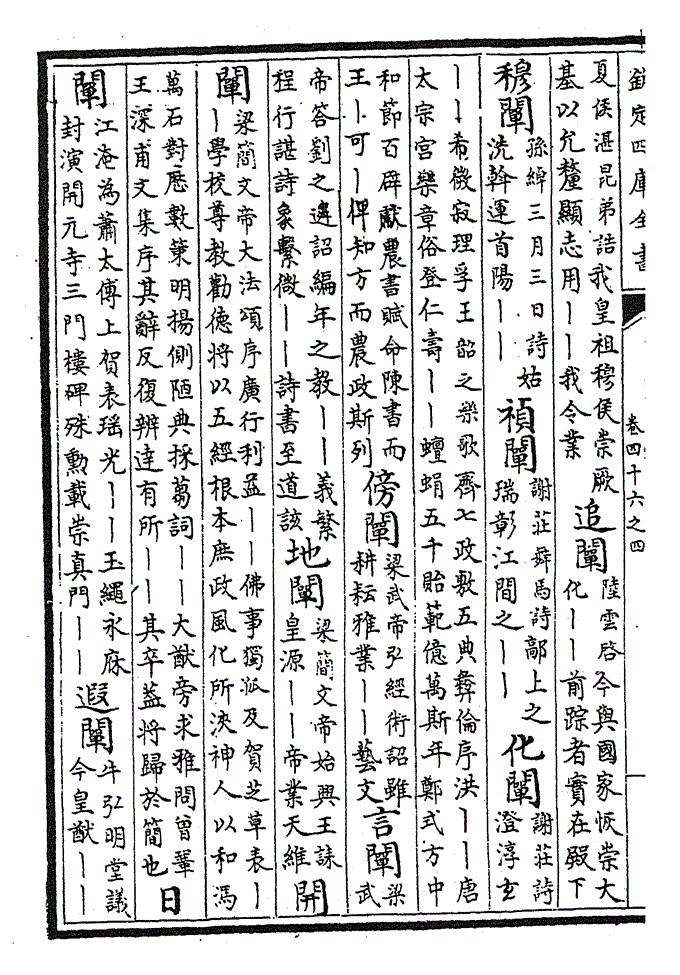 欽定四庫全書
卷四十六之四
夏侯湛昆弟誥我皇祖穆侯崇厥
基以允釐顯志用丨丨我令業
追闡
陸雲啓今與國家恢崇大
化丨丨前踪者實在殿下
穆闡
孫綽三月三日詩姑
洗斡運首陽丨丨
禎闡
謝莊舞馬詩鄗上之
瑞彰江間之丨丨
化闡
謝莊詩
澄淳玄
丨丨希微寂理孚王韶之樂歌齊七政敷五典彝倫序洪丨丨唐
太宗宮樂章俗登仁壽丨丨蟺蜎五千貽範億萬斯年鄭式方中
和節百辟獻農書賦命陳書而
王丨可丨俾知方而農政斯列
傍闡
梁武帝弘經術詔雖
耕耘雅業丨丨藝文
言闡
梁
武
帝答劉之遴詔編年之教丨丨義繁
程行諶詩象繫微丨丨詩書至道該
地闡
梁簡文帝始興王誄
皇源丨丨帝業天維
開
闡
梁簡文帝大法頌序廣行利益丨丨佛事獨孤及賀芝草表丨
丨學校尊教勸德將以五經根本庶政風化所浹神人以和馮
萬石對歷數策明揚側陋典採蒭詞丨丨大猷旁求雅問曾鞏
王深甫文集序其辭反復辨達有所丨丨其卒葢將歸於簡也
日
闡
江淹為蕭太傅上賀表瑶光丨丨玉繩永庥
封演開元寺三門樓碑殊勳載崇真門丨丨
遐闡
牛弘明堂議
今皇猷丨丨